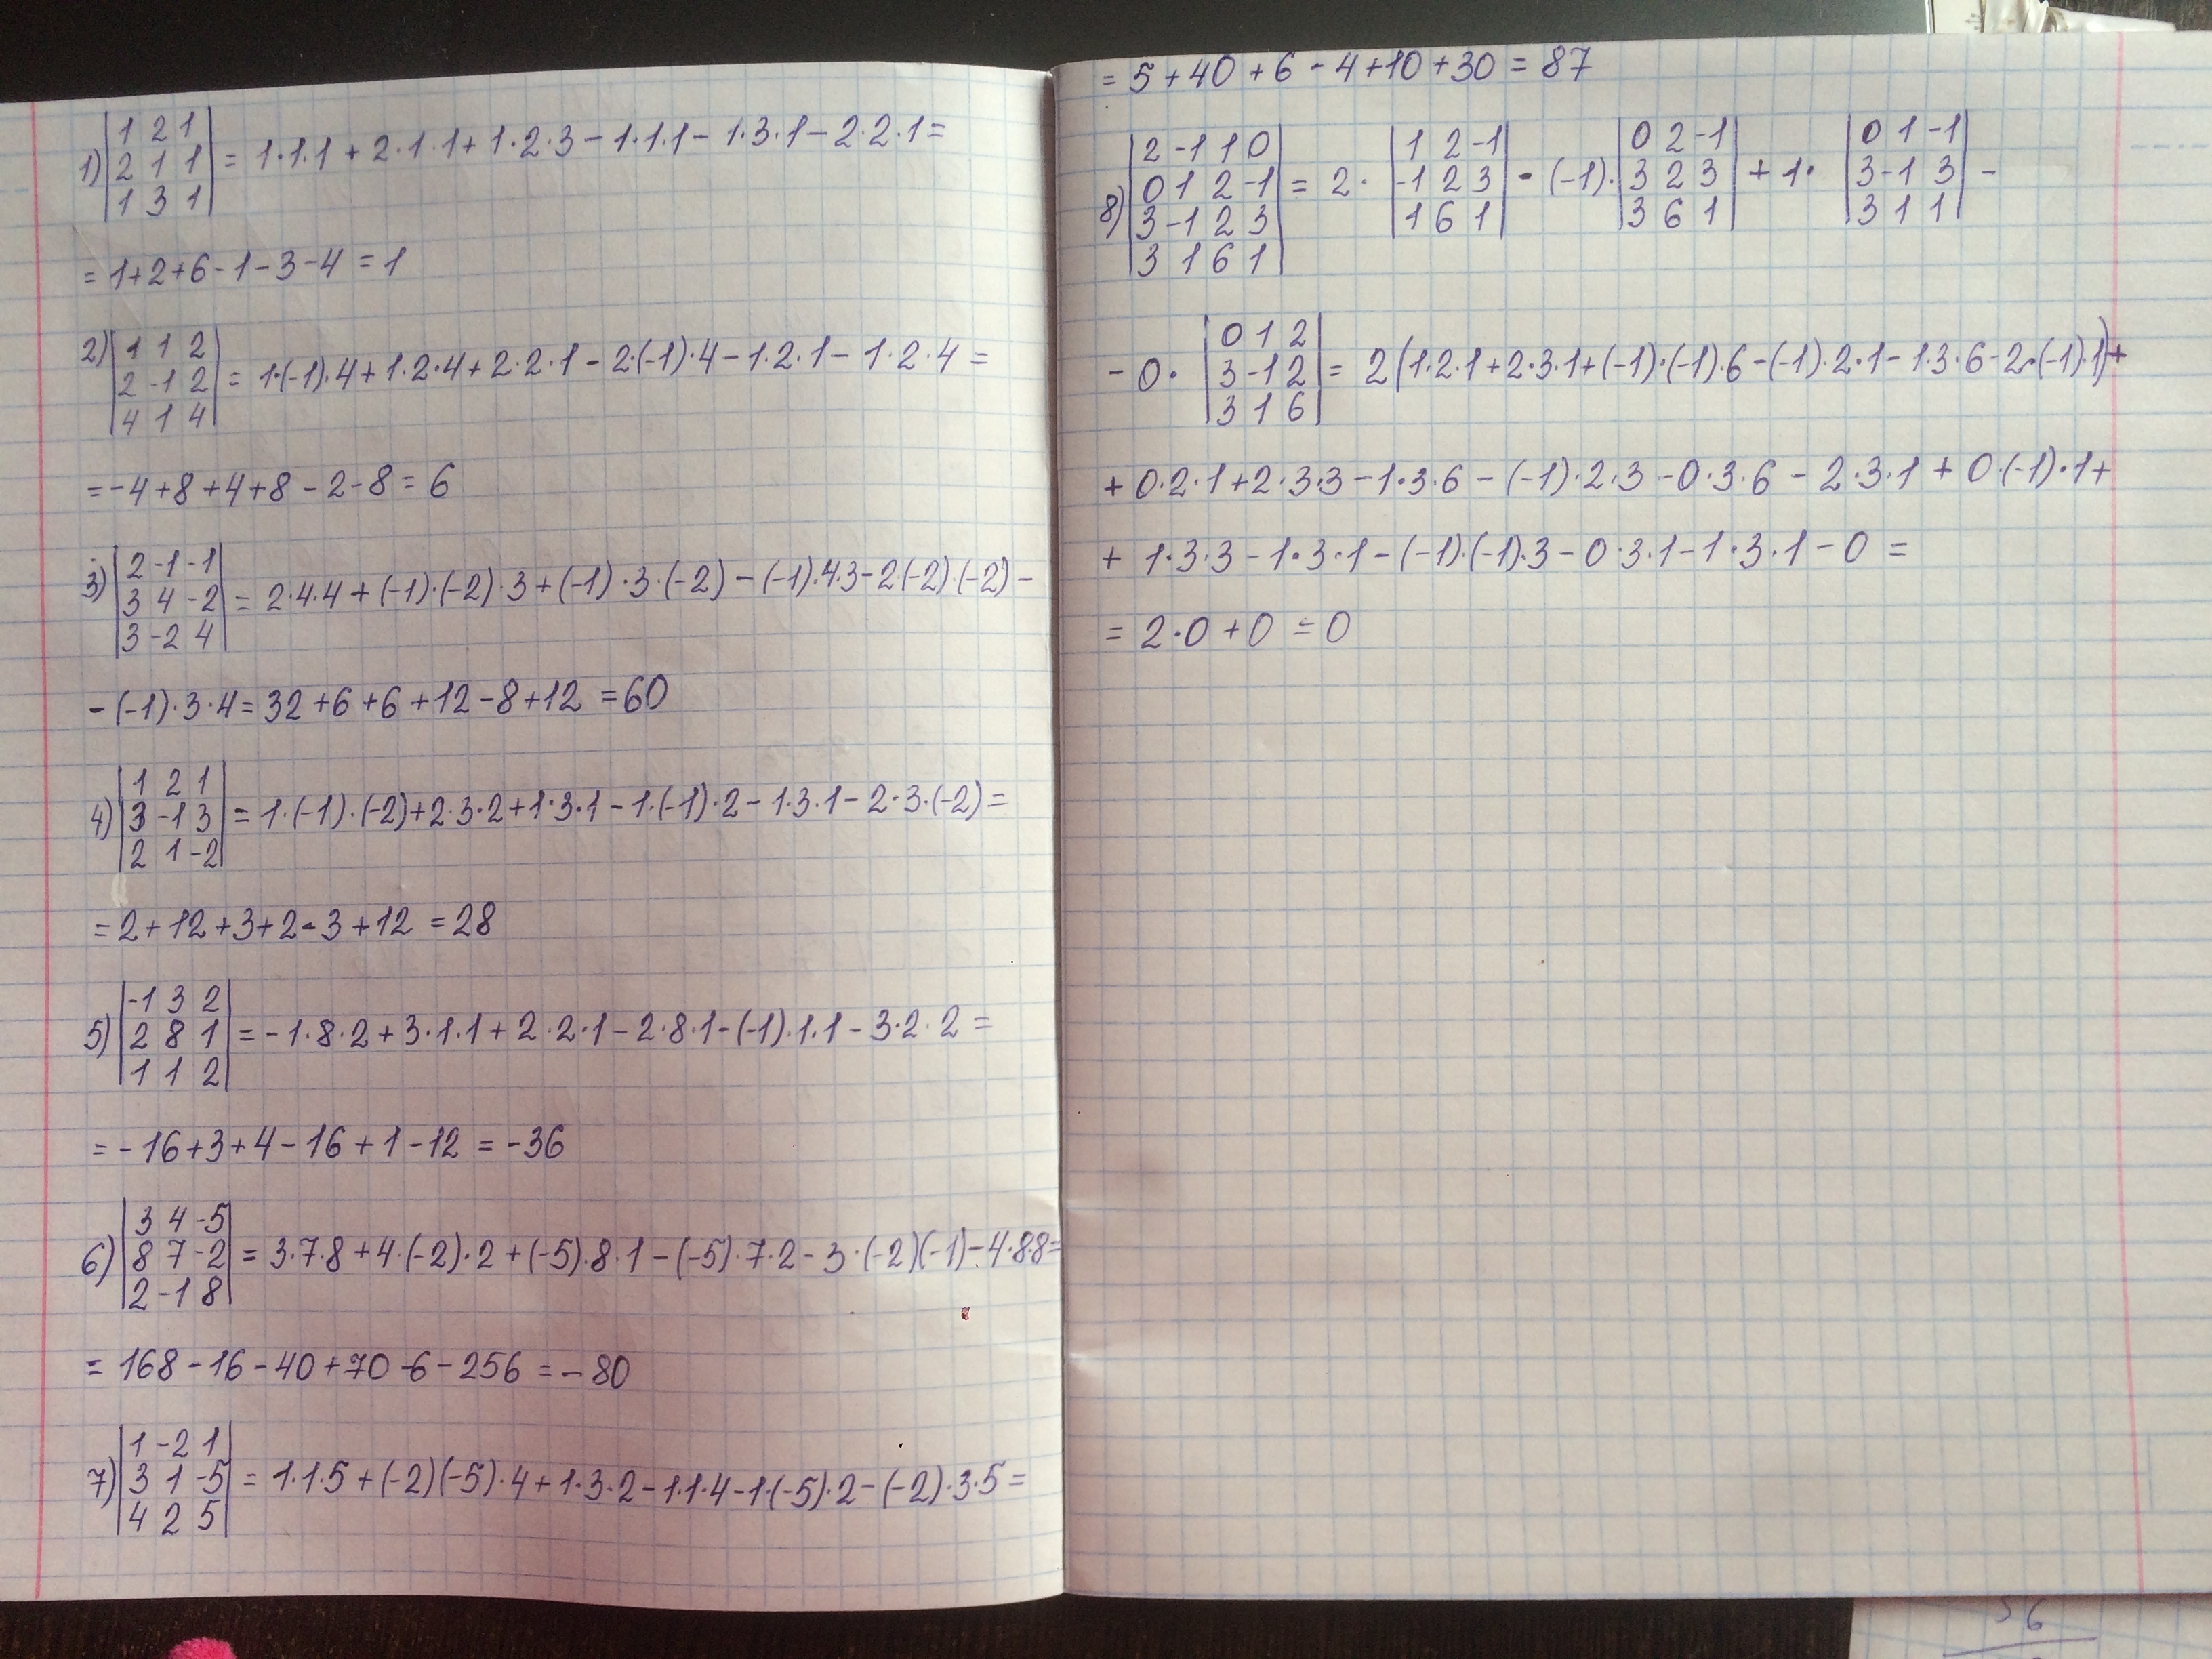 1) |1 2 1|
|2 1 1| = 1·1·1 + 2·1·1 + 1·2·3 − 1·1·1 − 1·3·1 − 2·2·1 =
|1 3 1|
= 1+2+6-1-3-4 = 1
2) |1 1 2|
|2 -1 2| = 1·(-1)·4 + 1·2·4 + 2·2·1 − 2·(-1)·4 − 1·2·1 − 1·2·4 =
|4 1 4|
= -4+8+4+8-2-8 = 6
3) |2 -1 -1|
|3 4 -2| = 2·4·4 + (-1)·(-2)·3 + (-1)·3·(-2) − (-1)·4·3 − 2·(-2)·(-2) −
|3 -2 4|
− (-1)·3·4 = 32+6+6+12-8+12 = 60
4) |1 2 1|
|3 -1 3| = 1·(-1)·(-2)+2·3·2+1·3·1 − 1·(-1)·2 − 1·3·1 − 2·3·(-2) =
|2 1 -2|
= 2+12+3+2-3+12 = 28
5) |-1 3 2|
|2 8 1| = -1·8·2 + 3·1·1 + 2·2·1 − 2·8·1 − (-1)·1·1 − 3·2·2 =
|1 1 2|
= -16+3+4-16+1-12 = -36
6) |3 4 -5|
|8 7 -2| = 3·7·8 + 4·(-2)·2 + (-5)·8·1 − (-5)·7·2 − 3·(-2)(-1) − 4·8·8 =
|2 -1 8|
= 168-16-40+70-6-256 = -80
7) |1 -2 1|
|3 1 -5| = 1·1·5 + (-2)(-5)·4 + 1·3·2 − 1·1·4 − 1·(-5)·2 − (-2)·3·5 =
|4 2 5|
= 5+40+6-4+10+30 = 87
8) |2 -1 1 0| |1 2 -1| |0 2 -1| |0 1 -1|
|0 1 2 -1| = 2· |-1 2 3| - (-1)· |3 2 3| + 1· |3 -1 3| −
|3 -1 2 3| |1 6 1| |3 6 1| |3 1 1|
|3 1 6 1|
|0 1 2|
− 0· |3 -1 2| = 2(1·2·1+2·3·1+(-1)·(-1)·6−(-1)·2·1−1·3·6−2·(-1)·1)+
|3 1 6|
+ 0·2·1+2·3·3−1·3·6−(-1)·2·3−0·3·6−2·3·1+0·(-1)·1+
+ 1·3·3−1·3·1−(-1)·(-1)·3−0·3·1−1·3·1−0 =
= 2·0+0 = 0
56